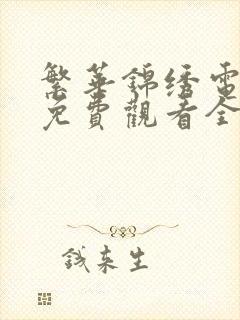 繁華錦绣電
免費觀看全
錢來生